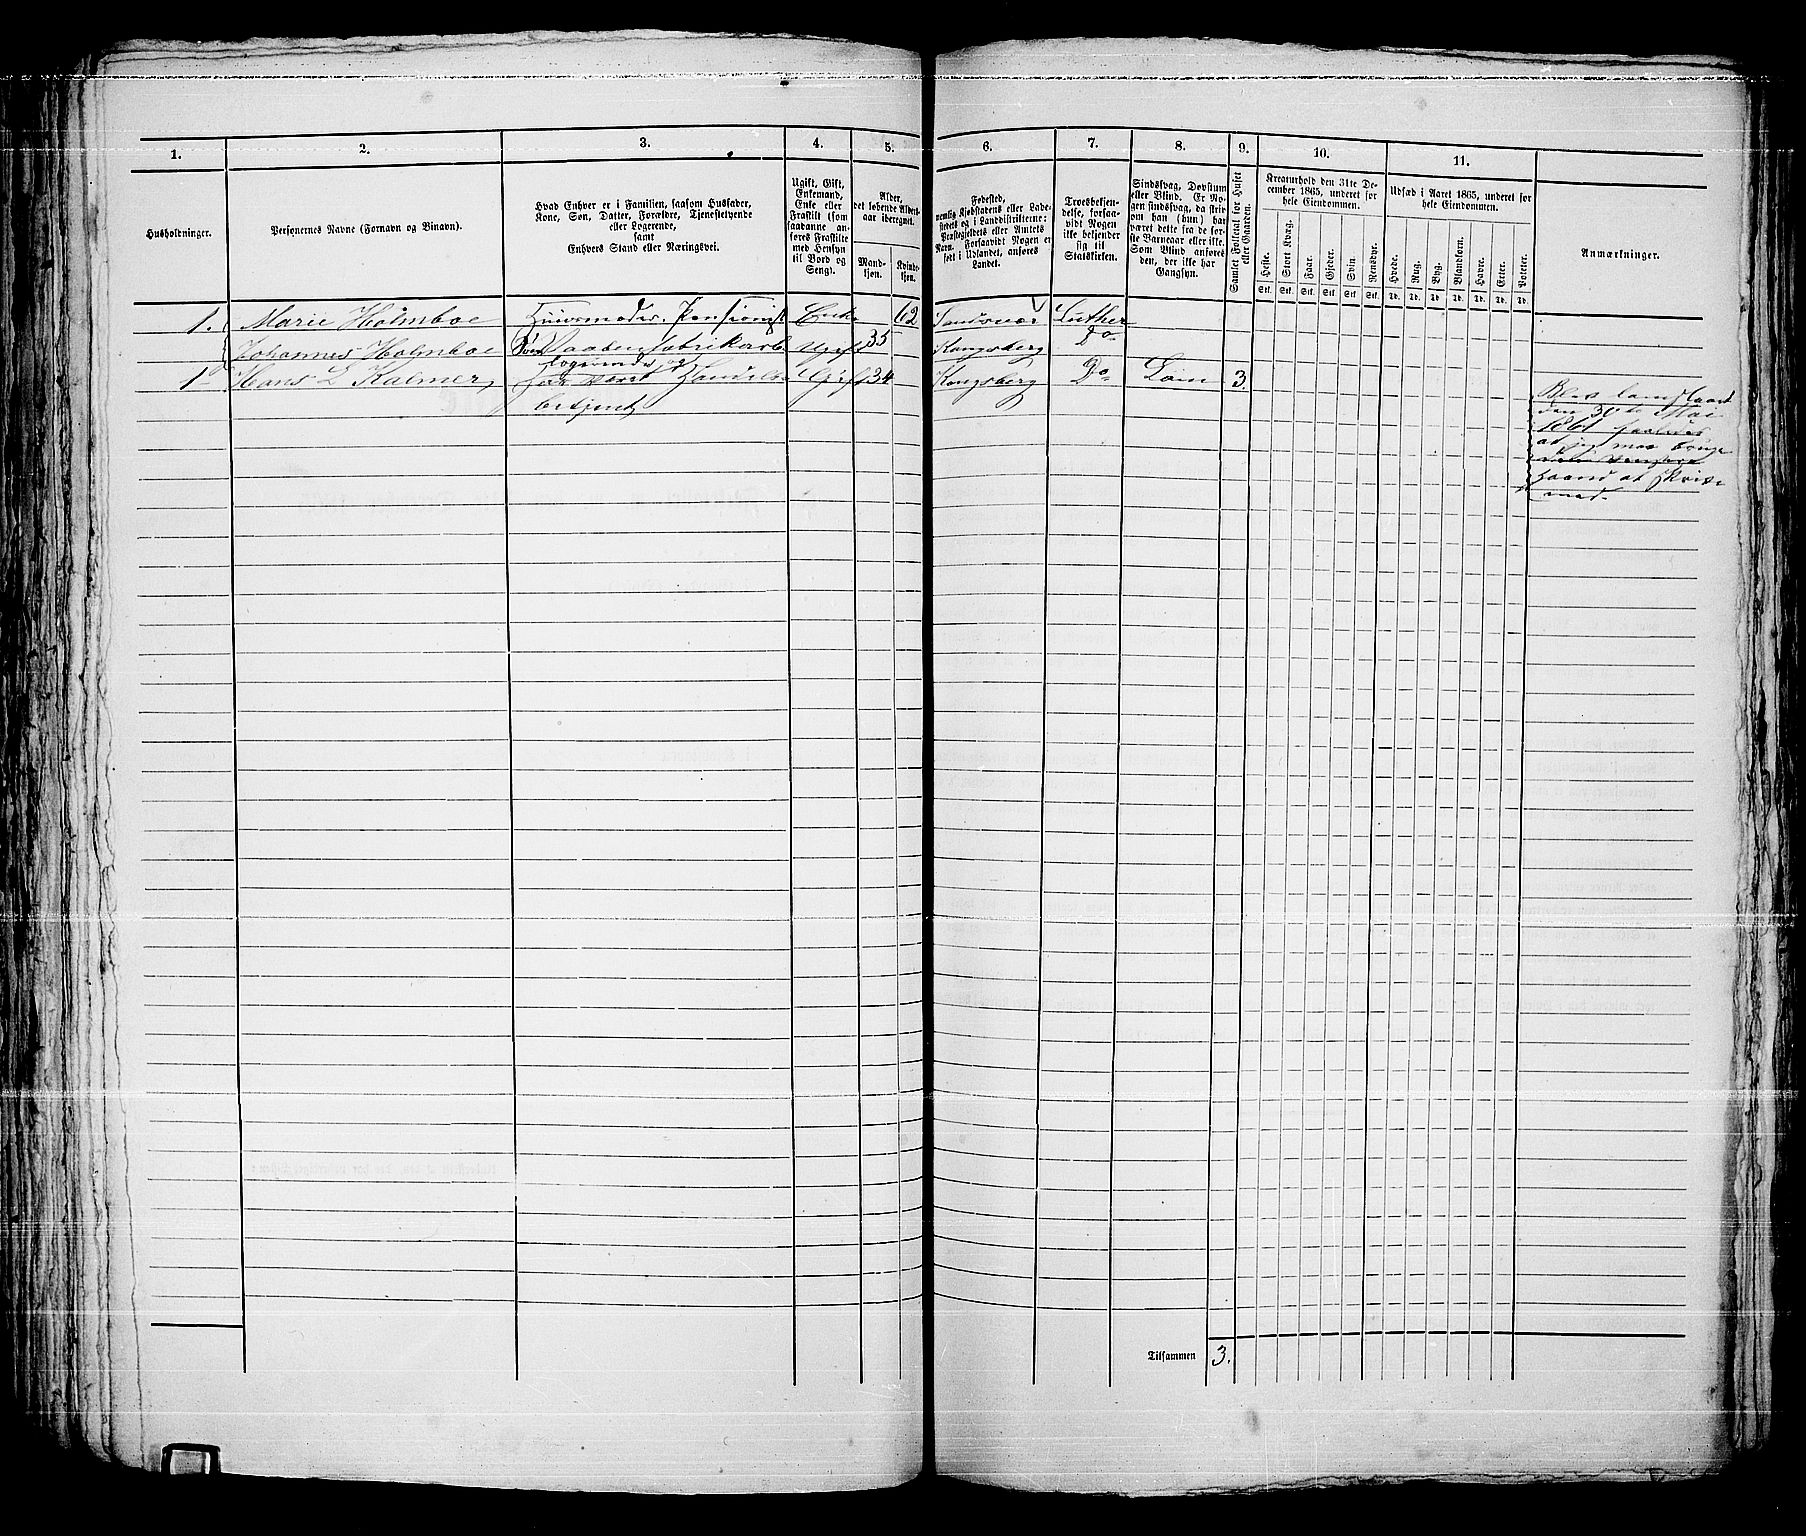 1. 2. 3. 4. 5. 6. 7. 8. 9. 10. 11.
Husholdninger.
Personernes Navne (Fornavn og Binavn).
Hvad Enhver er i Familien, saasom Husfader,
Kone, Søn, Datter, Forældre, Tjenestetyende
eller Logerende,
samt
Enhvers Stand eller Næringsvei.
Ugift, Gift,
Enkemand,
Enke eller
Fraskilt (som
saadanne an-
føres Fraskilte
med Hensyn
til Bord og
Seng).
Alder,
det løbende Alders-
aar iberegnet.
Mand-
kjøn.
Kvinde-
kjøn.
Fødested,
nemlig Kjøbstadens eller Lade-
stedets og i Landdistrikterne:
Præstegjeldets eller Amtets
Navn. Forsaavidt Nogen er
født i Udlandet, anføres
Landet.
Troesbekjen-
delse, forsaa-
vidt Nogen
ikke bekjender
sig til
Statskirken.
Sindssvag, Døvstum
eller Blind. Er No-
gen sindssvag, da skri-
ves om han (hun) har
været dette fra de før-
ste Barneaar eller ikke.
Som Blind anføres
den, der ikke har
Gangsyn.
Samlet Folketal for Huset
eller Gaarden.
Kreaturhold den 31te De-
cember 1865, underet for
hele Eiendommen.
Heste. Stort Kvæg. Faar. Gjeder. Svin. Rensdyr.
Stk. Stk. Stk. Stk. Stk. Stk.
Udsæd i Aaret 1865, underet for
hele Eiendommen.
Hvede. Rug. Byg. Blandkorn. Havre. Erter. Poteter.
Td. Td. Td. Td. Td. Td. Td.
Anmærkninger.
1. Marie Holmboe Huusmoder. Pensionist Enke 62 Sandsvær Luther
Johannes Holmboe Søn Vaabenfabrikarb. Ugift 35 Kongsberg Do
1 Hans L Kalmer Logerende og Handels Gift 34 Kongsberg Do Lam 3.
betjent
Blev lam
den 30te Mai
1861 saaledes
at jeg maa bruge
Haand at skrive
med.
Tilsammen 3.